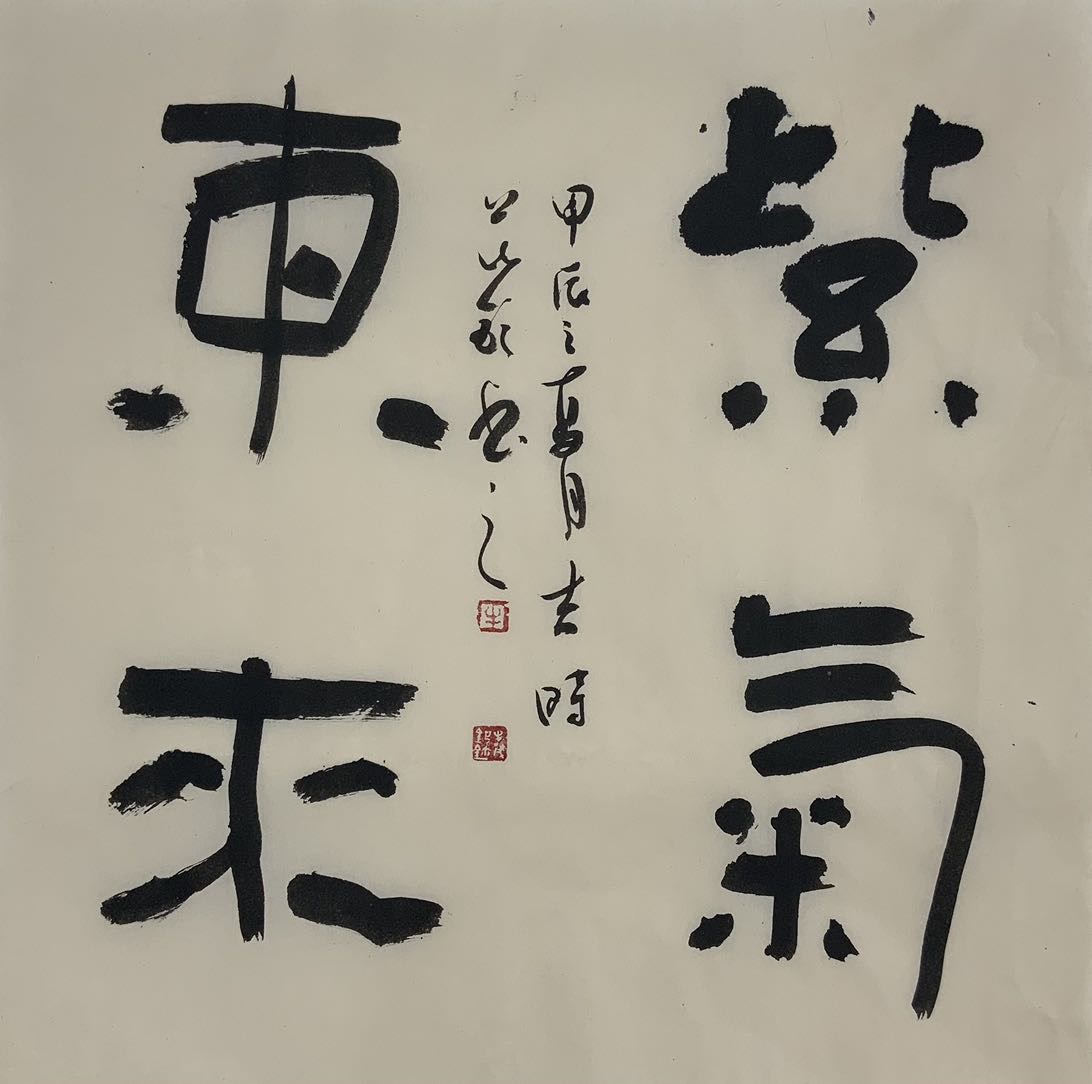 紫氣
東来
甲辰之夏月吉時
書之